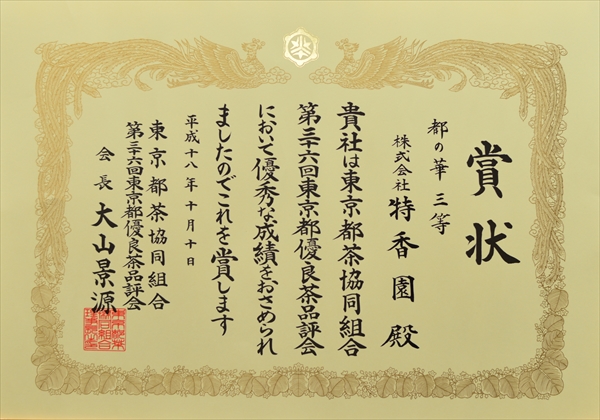 賞状
都の華 三等
株式会社 特香園 殿
貴社は東京都茶協同組合
第三十六回東京都優良茶品評会
において優秀な成績をおさめられ
ましたのでこれを賞します
平成十八年十月十日
東京都茶協同組合
第三十六回東京都優良茶品評会
会長 大山景源